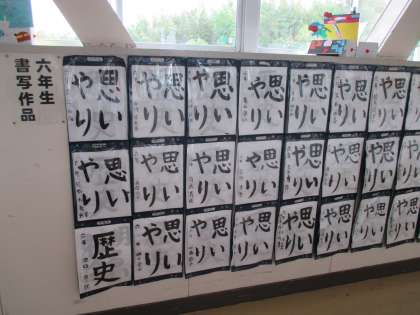 六年生
書写作品
思い
やり
思い
やり
思い
やり
思い
やり
思い
やり
思い
やり
思い
やり
思い
やり
思い
やり
思い
やり
思い
やり
思い
やり
思い
やり
思い
やり
思い
やり
歴史
思い
やり
思い
やり
思い
やり
思い
やり
思い
やり
思い
やり
思い
やり